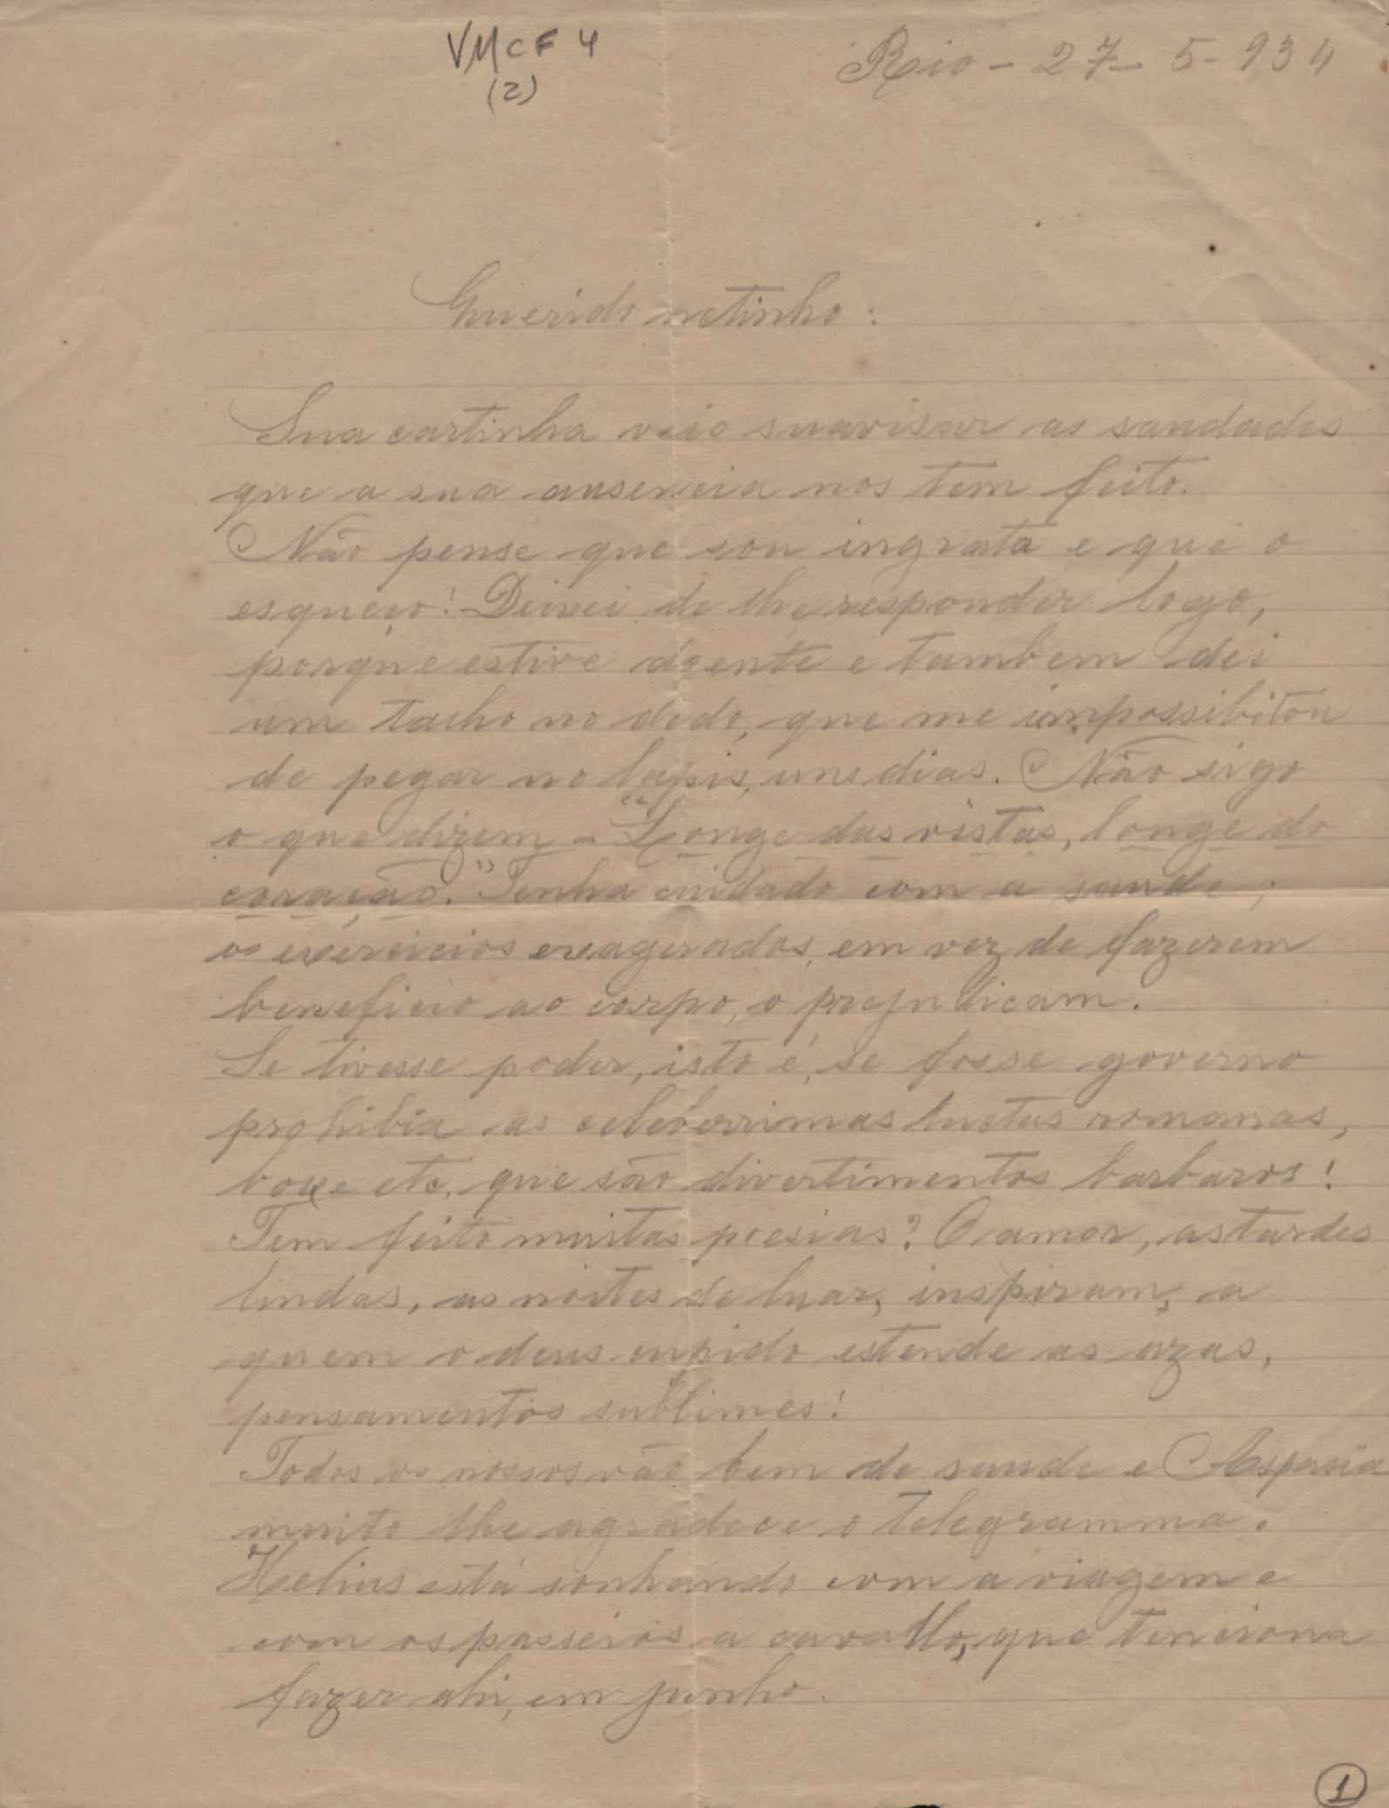 VMCF 4
(2)
Rio - 27 - 5 - 934
Querido netinho:
Sua cartinha veio suavisar as saudades
que a sua ausencia nos tem feito.
Não pense que sou ingrata e que o
esqueço! Deixei de lhe responder logo,
porque estive doente e tambem dei
um talho no dedo, que me impossibitou
de pegar no lapis, uns dias. Não sigo
o que dizem - "Longe das vistas, longe do
coração." Tenha cuidado com a saude;
os exercicios exagerados, em vez de fazerem
beneficio ao corpo, o prejudicam.
Se tivesse poder, isto é, se fosse governo
prohibia as celeberrimas luctas romanas,
boxe etc. que são divertimentos barbaros!
Tem feito muitas poesias? O amor, as tardes
lindas, as noites de luar, inspiram, a
quem o deus cupido estende as azas,
pensamentos sublimes!
Todos os nossos vão bem de saude e Aspasia
muito lhe agradece o telegramma.
Helius está sonhando com a viagem e
com os passeios a cavallo, que tenciona
fazer ahi, em junho.
1